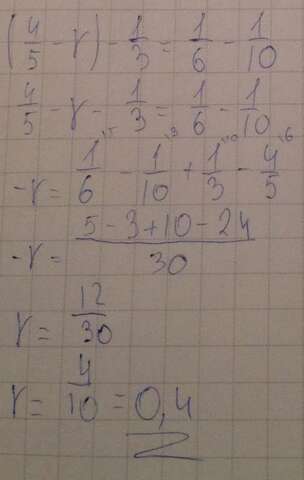 (4/5 - r) - 1/3 = 1/6 - 1/10
4/5 - r - 1/3 = 1/6 - 1/10
-r = 1/6 \5 - 1/10 \3 + 1/3 \10 - 4/5 \6
-r = (5 - 3 + 10 - 24)/30
r = 12/30
r = 4/10 = 0,4